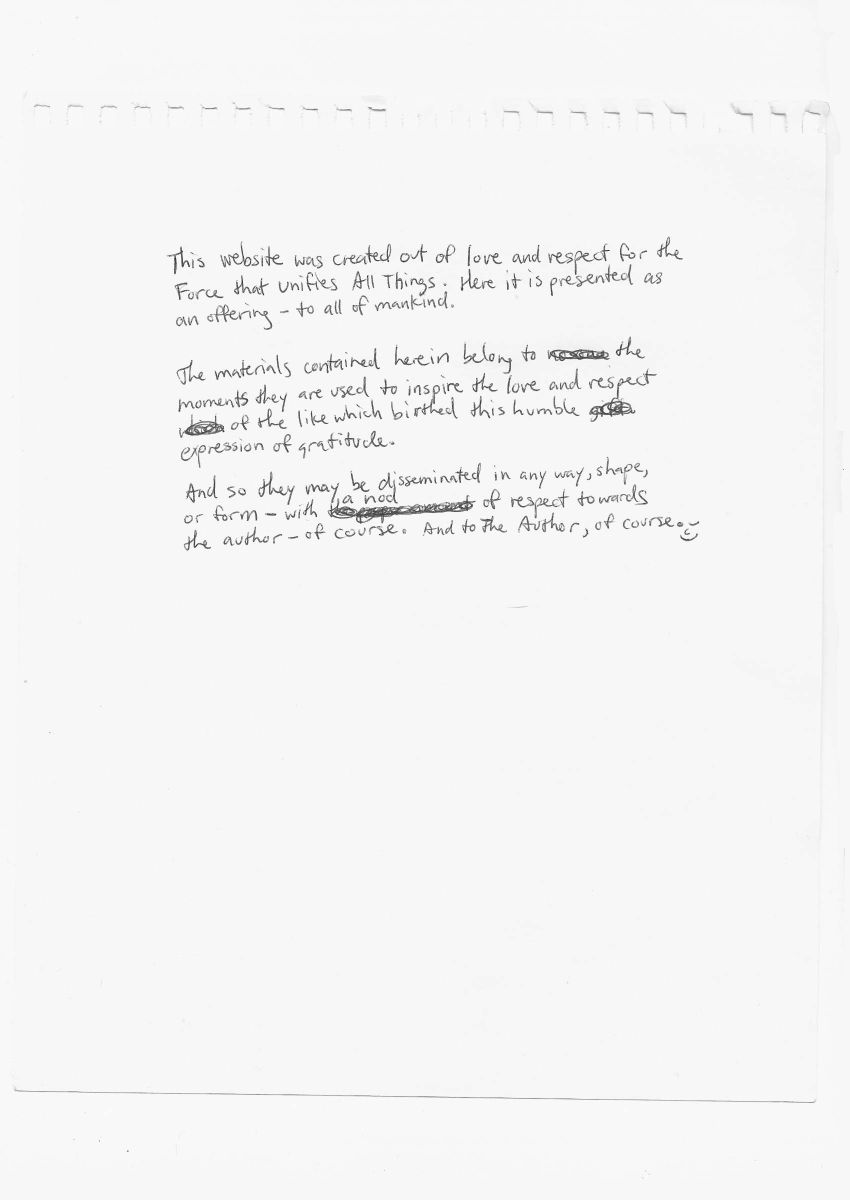 This website was created out of love and respect for the
Force that unifies All Things. Here it is presented as
an offering – to all of mankind.
The materials contained herein belong to the
moments they are used to inspire the love and respect
of the like which birthed this humble
expression of gratitude.
And so they may be disseminated in any way, shape,
or form – with a nod of respect towards
the author – of course. And to The Author, of course.